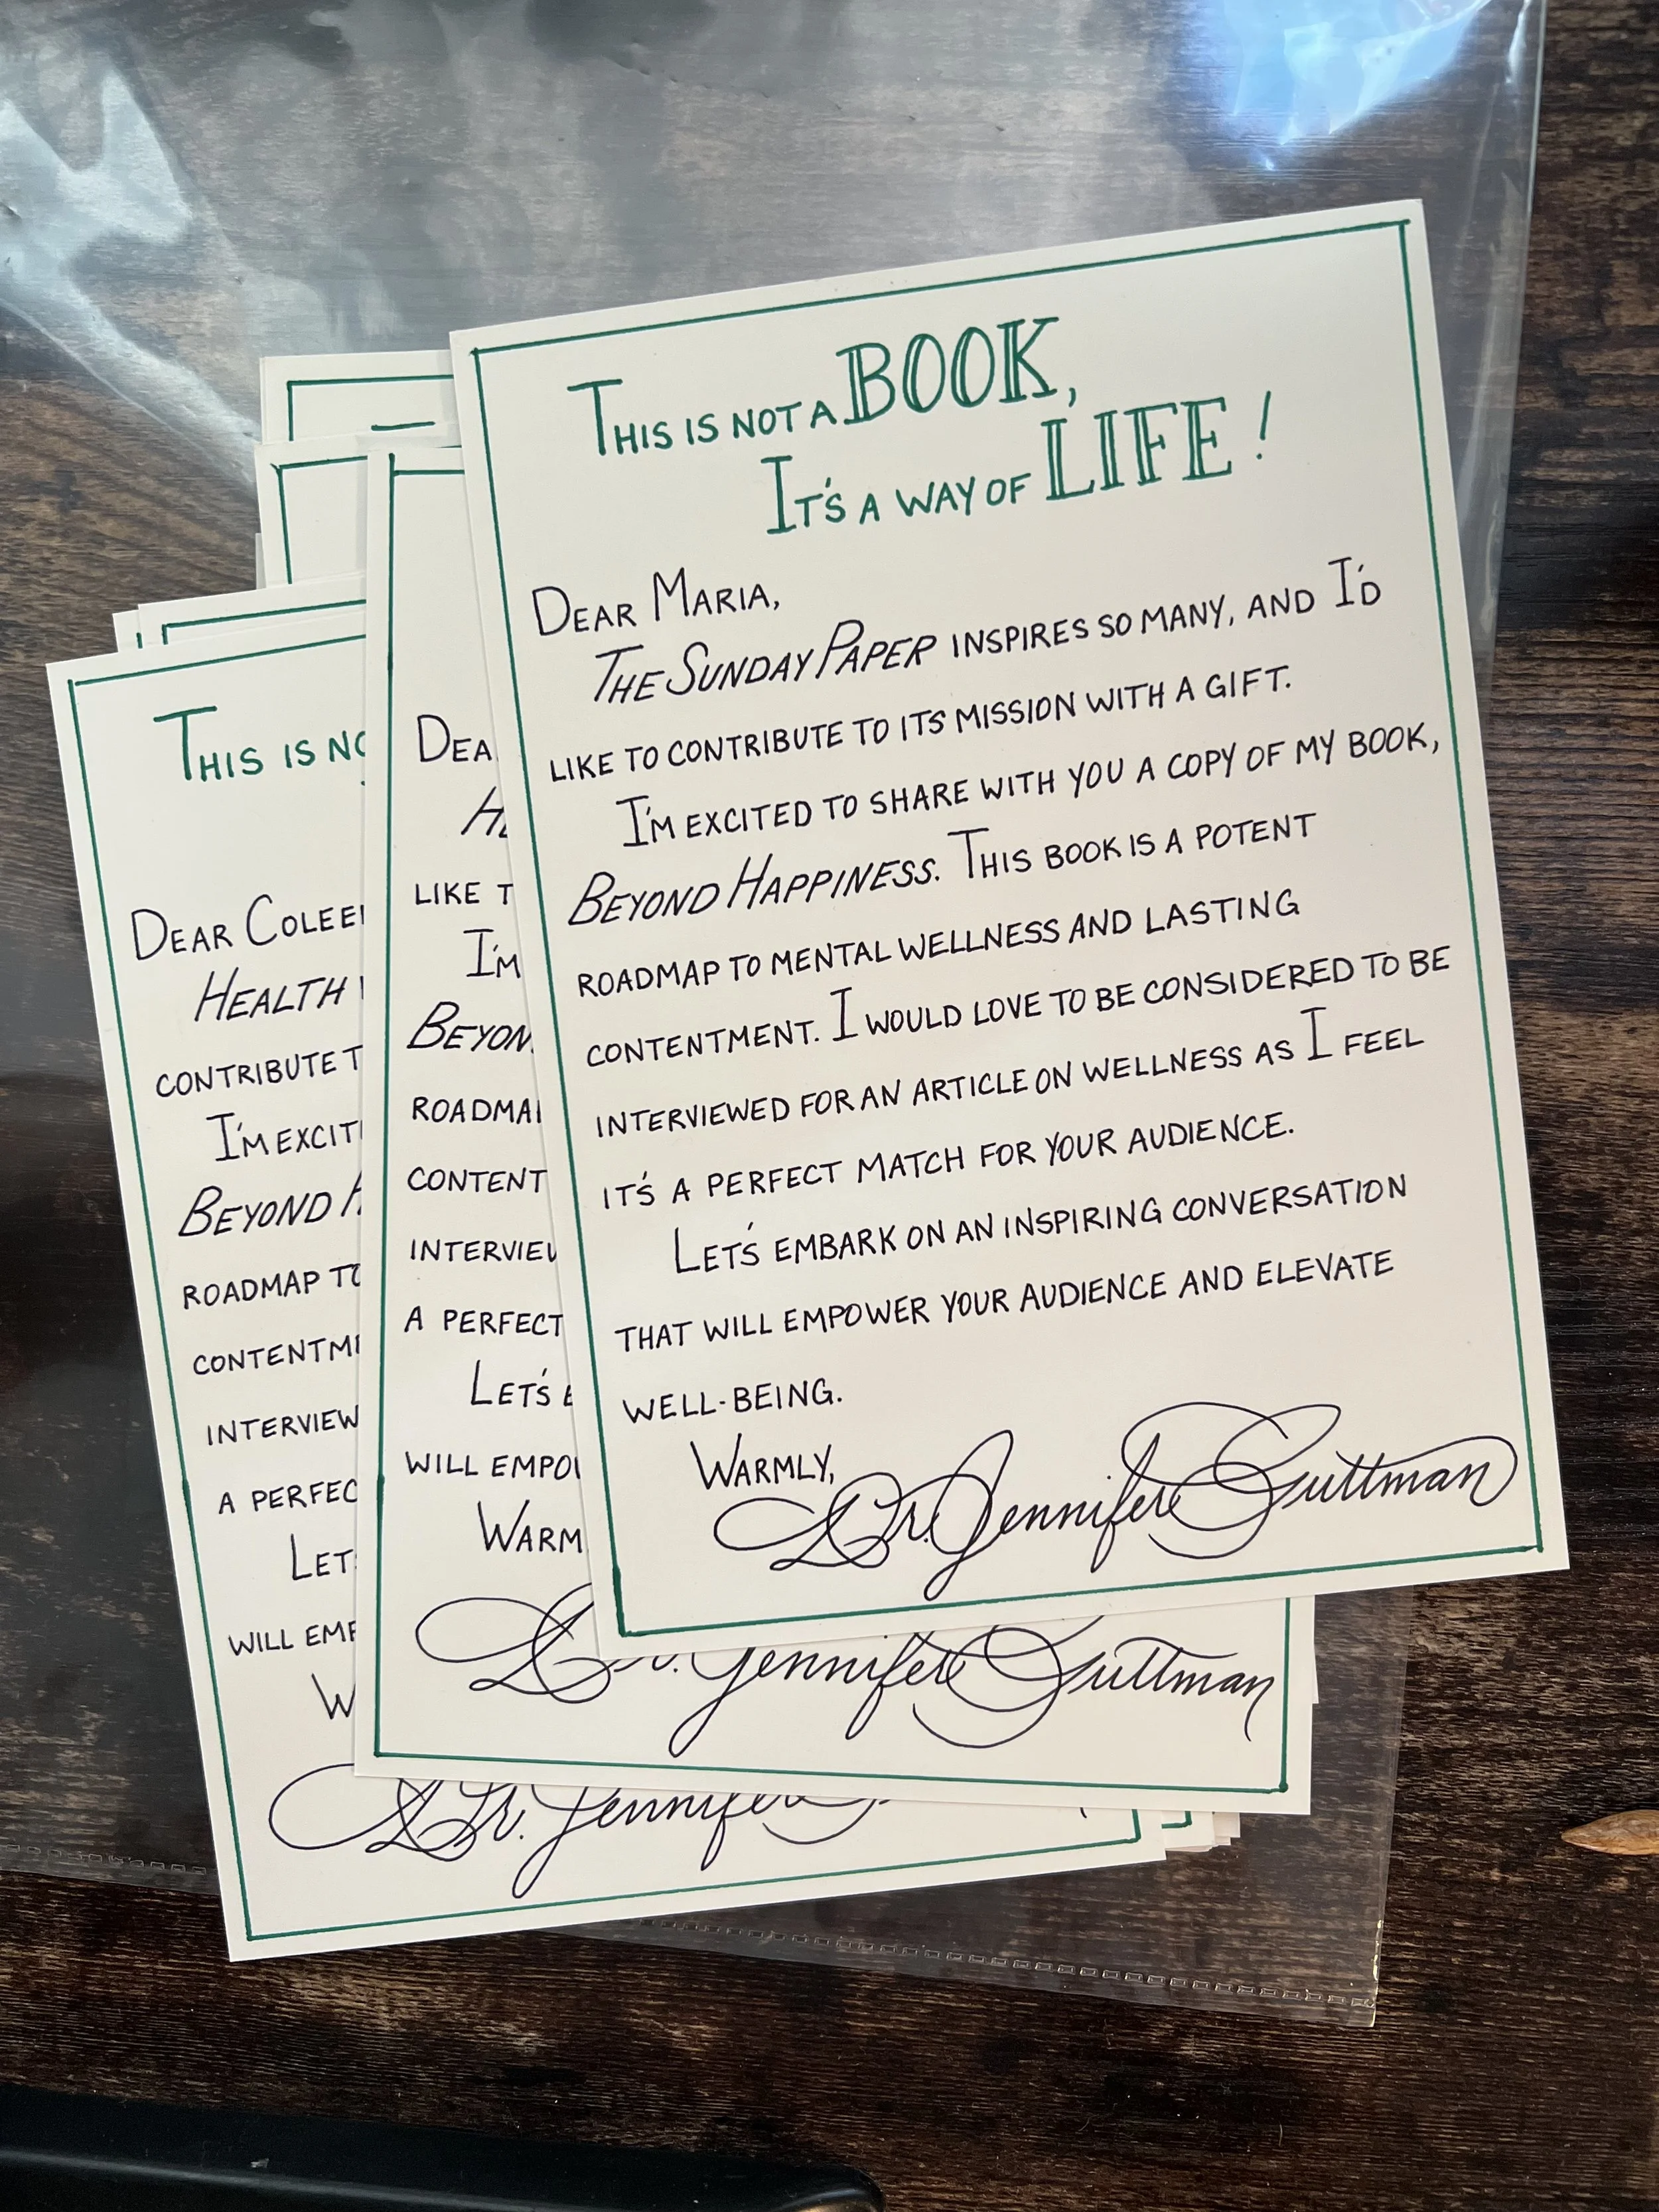 THIS IS NOT A BOOK,
IT'S A WAY OF LIFE!
DEAR MARIA,
THE SUNDAY PAPER INSPIRES SO MANY, AND I'D
LIKE TO CONTRIBUTE TO ITS MISSION WITH A GIFT.
I'M EXCITED TO SHARE WITH YOU A COPY OF MY BOOK,
BEYOND HAPPINESS. THIS BOOK IS A POTENT
ROADMAP TO MENTAL WELLNESS AND LASTING
CONTENTMENT. I WOULD LOVE TO BE CONSIDERED TO BE
INTERVIEWED FOR AN ARTICLE ON WELLNESS AS I FEEL
IT'S A PERFECT MATCH FOR YOUR AUDIENCE.
LET'S EMBARK ON AN INSPIRING CONVERSATION
THAT WILL EMPOWER YOUR AUDIENCE AND ELEVATE
WELL-BEING.
WARMLY,
Dr. Jennifer Guttman
DEA
LIKE T
I'M
BEYON
ROADMA
CONTENT
INTERVIEW
A PERFECT
LET'S E
WILL EMPO
WARM
Dr. Jennifer Guttman
THIS IS NO
DEAR COLEE
HEALTH
CONTRIBUTE T
I'M EXCIT
BEYOND H
ROADMAP TO
CONTENTM
INTERVIEW
A PERFEC
LET
WILL EMP
W
Dr. Jennifer